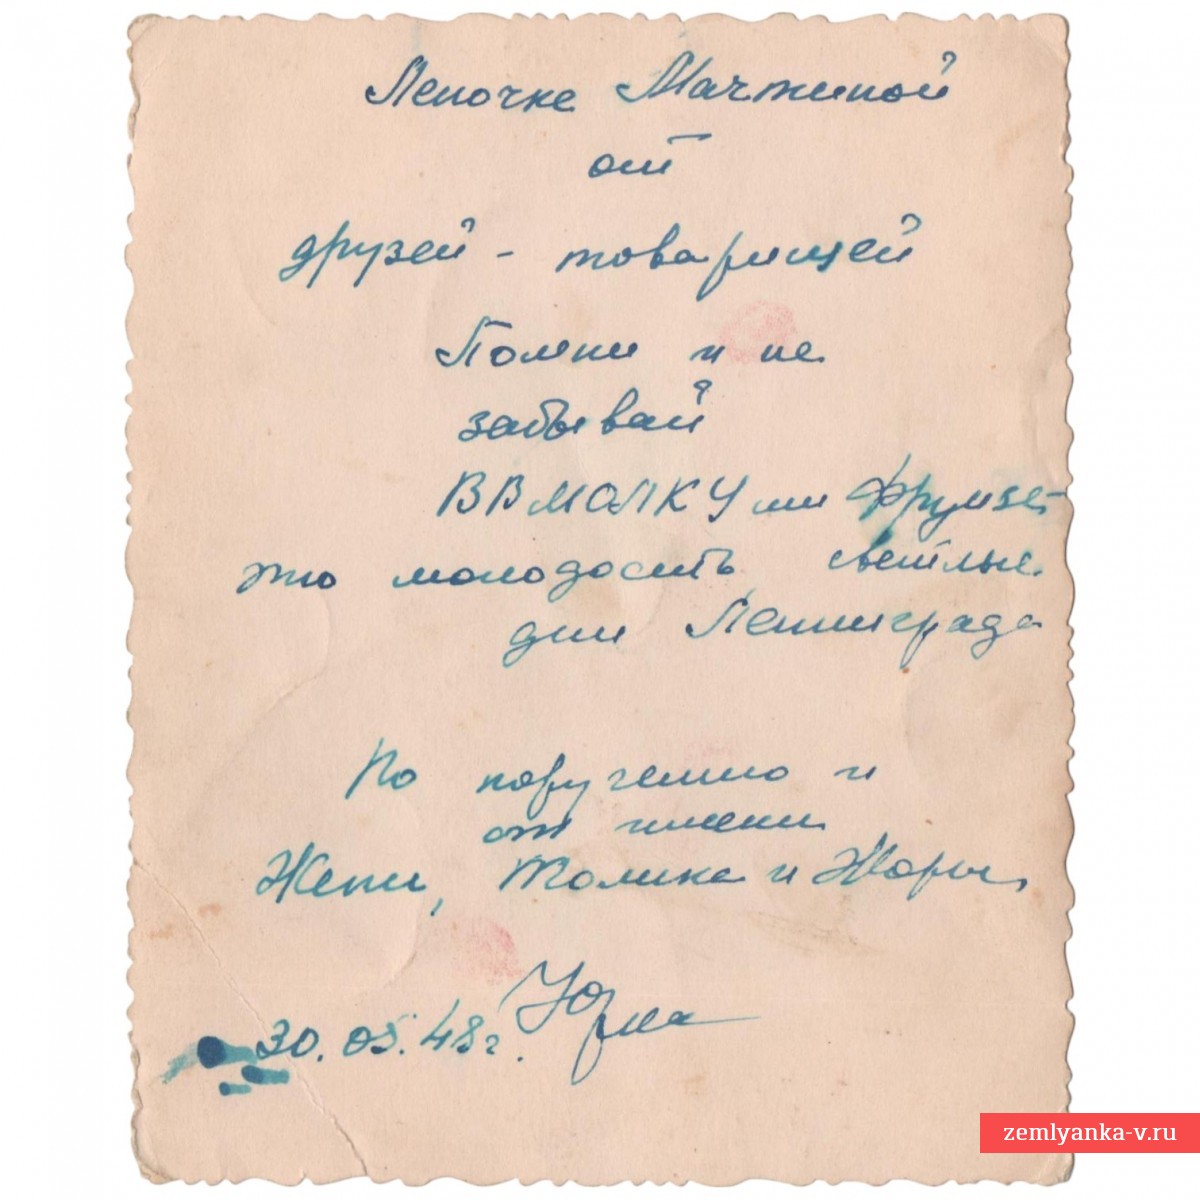 Леночке Мачтиной
от
друзей - товарищей
Помни и не
забывай
ВВМОЛКУ им Фрунзе -
это молодость, светлые
дни Ленинграда
По поручению и
от имени
Жени, Толика и Жоры,
30.05.48г.
zemlyanka-v.ru